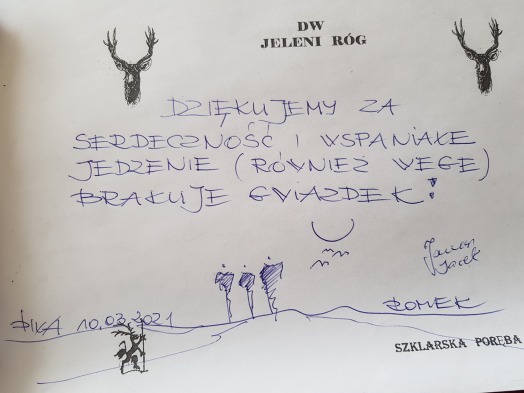 DW
JELENI RÓG
DZIĘKUJEMY ZA
SERDECZNOŚĆ I WSPANIAŁE
JEDZENIE (RÓWNIEŻ WEGE)
BRAKUJE GWIAZDEK!
Jacek
ROMEK
10.03.2021
SZKLARSKA PORĘBA